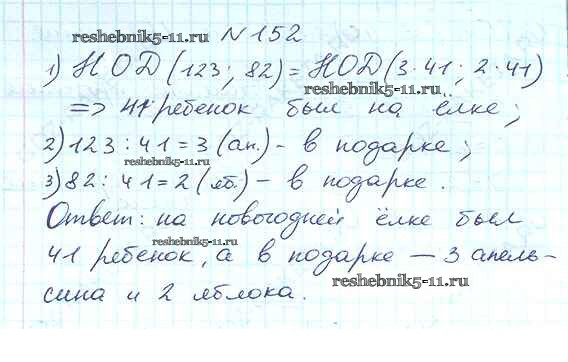 reshebnik5-11.ru №152
1) НОД (123; 82) = НОД (3·41; 2·41)
reshebnik5-11.ru
=> 41 ребенок был на ёлке;
2) 123 : 41 = 3 (ап.) - в подарке;
reshebnik5-11.ru
3) 82 : 41 = 2 (яб.) - в подарке.
Ответ: на новогодней ёлке был
reshebnik5-11.ru
41 ребенок, а в подарке — 3 апель-
сина и 2 яблока. reshebnik5-11.ru